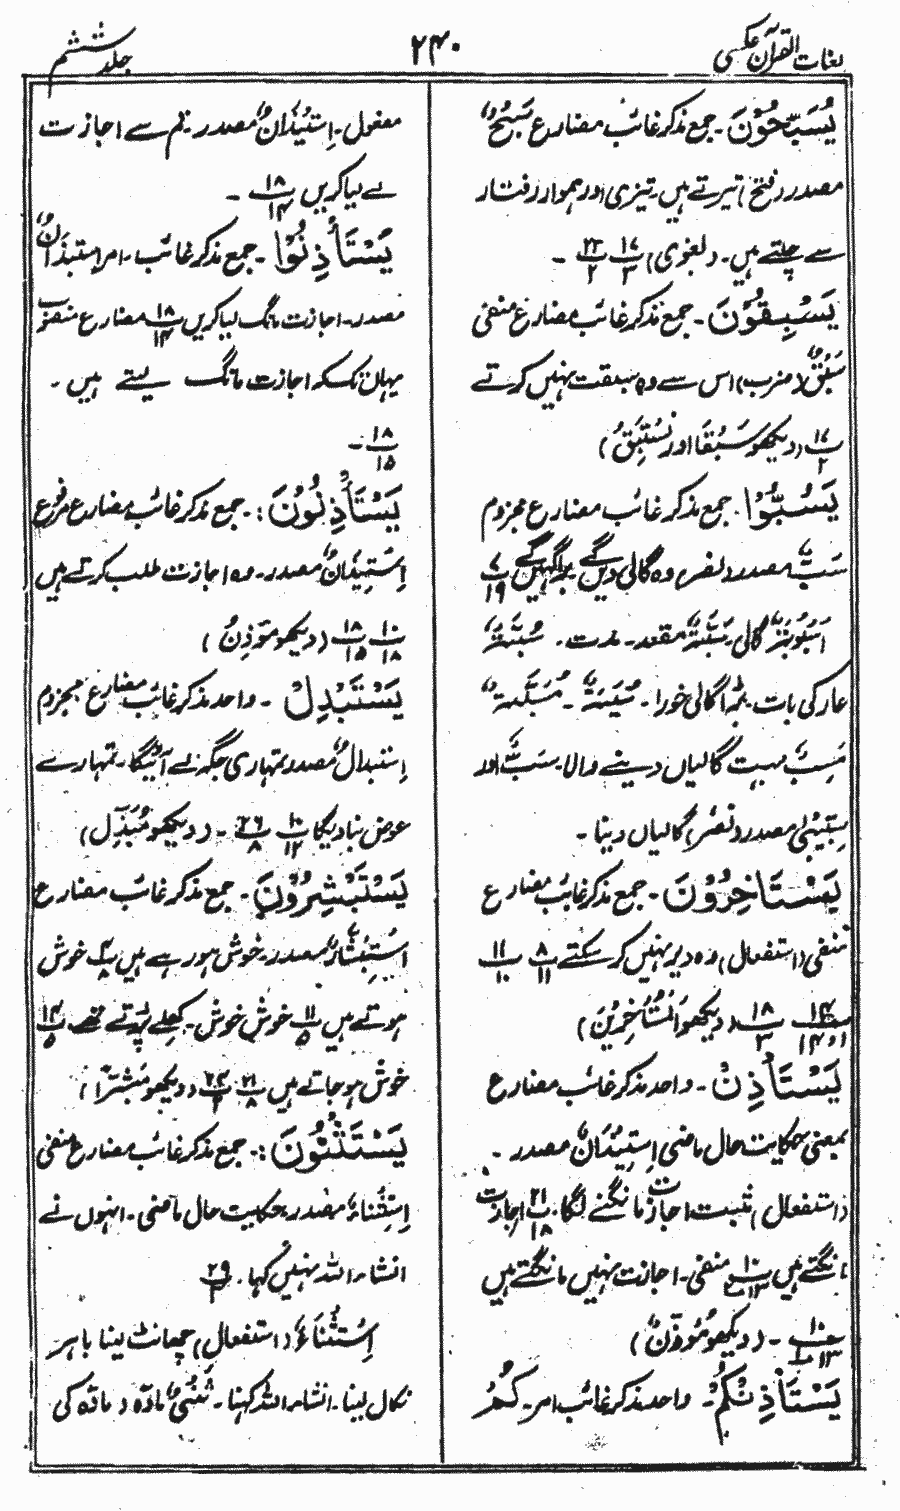 لغات القرآن عکسی
۲۴۰
جلد ششم
یُسَبِّحُوْنَ ۔ جمع مذکر غائب مضارع سَبْحٌ
مصدر (فتح) تیرتے ہیں۔ تیزی اور ہموار رفتار
سے چلتے ہیں۔ (لغوی) ۱۷/۳ ۲۳/۲ ۔
یَسْبِقُوْنَ ۔ جمع مذکر غائب مضارع منفی
سَبْقٌ (ضرب) اس سے وہ سبقت نہیں کرتے
۱۷/۲ (دیکھو سَبَقَا اور نَسْتَبِقُ)
یَسُبُّوْا ۔ جمع مذکر غائب مضارع مجزوم
سَبٌّ مصدر (نصر) وہ گالی دیں گے برا کہیں گے ۷/۱۹
اُسْبُوْبَۃٌ گالی۔ سَبَّۃٌ مقعد۔ مدت۔ سُبَّۃٌ
عار کی بات۔ بڑا گالی خورا۔
سِبٌّ بہت گالیاں دینے والا۔ سَبٌّ اور
مصدر (نصر) گالیاں دینا ۔
یَسْتَاْخِرُوْنَ ۔ جمع مذکر غائب مضارع
منفی (استفعال) وہ دیر نہیں کر سکتے ۸/۱۱ ۱۱/۱۰
۱۴/۱۴ ۱۸/۳ (دیکھو اَلْمُسْتَاْخِرِیْنَ)
یَسْتَاْذِنُ ۔ واحد مذکر غائب مضارع
بمعنی حکایت حال ماضی اِسْتِیْذَانٌ مصدر ۔
(استفعال) مثبت اجازت مانگنے لگا۔ ۲۱/۱۸ اجازت
مانگتے ہیں ۱۰/۱۳ منفی۔ اجازت نہیں مانگتے ہیں
۱۰/۱۳ ۔ (دیکھو مُؤَذِّنٌ)
یَسْتَاْذِنْکُمْ ۔ واحد مذکر غائب امر۔ کُمْ
مفعول۔ اِسْتِیْذَانٌ مصدر۔ تم سے اجازت
لے لیا کریں ۱۸/۱۴ ۔
یَسْتَاْذِنُوْا ۔ جمع مذکر غائب۔ امر استیذانٌ
مصدر۔ اجازت مانگ لیا کریں ۱۸/۱۴ مضارع منصوب
یہاں تک کہ اجازت مانگ لیتے ہیں ۔
۱۸/۱۵ ۔
یَسْتَاْذِنُوْنَ :۔ جمع مذکر غائب مضارع مرفوع
اِسْتِیْذَانٌ مصدر۔ وہ اجازت طلب کرتے ہیں
۱۰/۱۸ ۱۸/۱۵ (دیکھو مُؤَذِّنٌ)
یَسْتَبْدِلْ ۔ واحد مذکر غائب مضارع مجزوم
اِسْتِبْدَالٌ مصدر تمہاری جگہ لے آئیگا۔ تمہارے
عوض بنا دیگا ۱۰/۱۲ ۲۶/۸ ۔ (دیکھو مُبَدِّل)
یَسْتَبْشِرُوْنَ ۔ جمع مذکر غائب مضارع
اِسْتِبْشَارٌ مصدر۔ خوش ہو رہے ہیں ۴/۸ خوش
ہوتے ہیں ۱۱/۵ خوش خوش۔ کھلے پڑتے تھے ۱۴/۵
خوش ہو جاتے ہیں ۲۱/۸ ۲۴/۲ (دیکھو مُبَشِّرًا)
یَسْتَثْنُوْنَ :۔ جمع مذکر غائب مضارع منفی
اِسْتِثْنَاءٌ مصدر۔ حکایت حال ماضی۔ انہوں نے
انشاء اللہ نہیں کہا۔ ۲۹/۳
اِسْتِثْنَاءٌ (استفعال) چھانٹ لینا باہر
نکال لینا۔ انشاء اللہ کہنا۔ ثَنْیٌ مادّہ (مادّہ کی